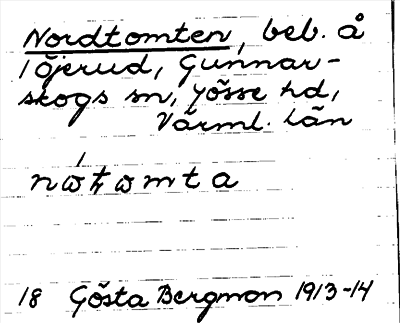 Nordtomten, beb. å
1 Öjerud, Gunnar-
skogs sn, Jösse hd,
Värml. län
nωꞧωmta
18 Gösta Bergman 1913-14